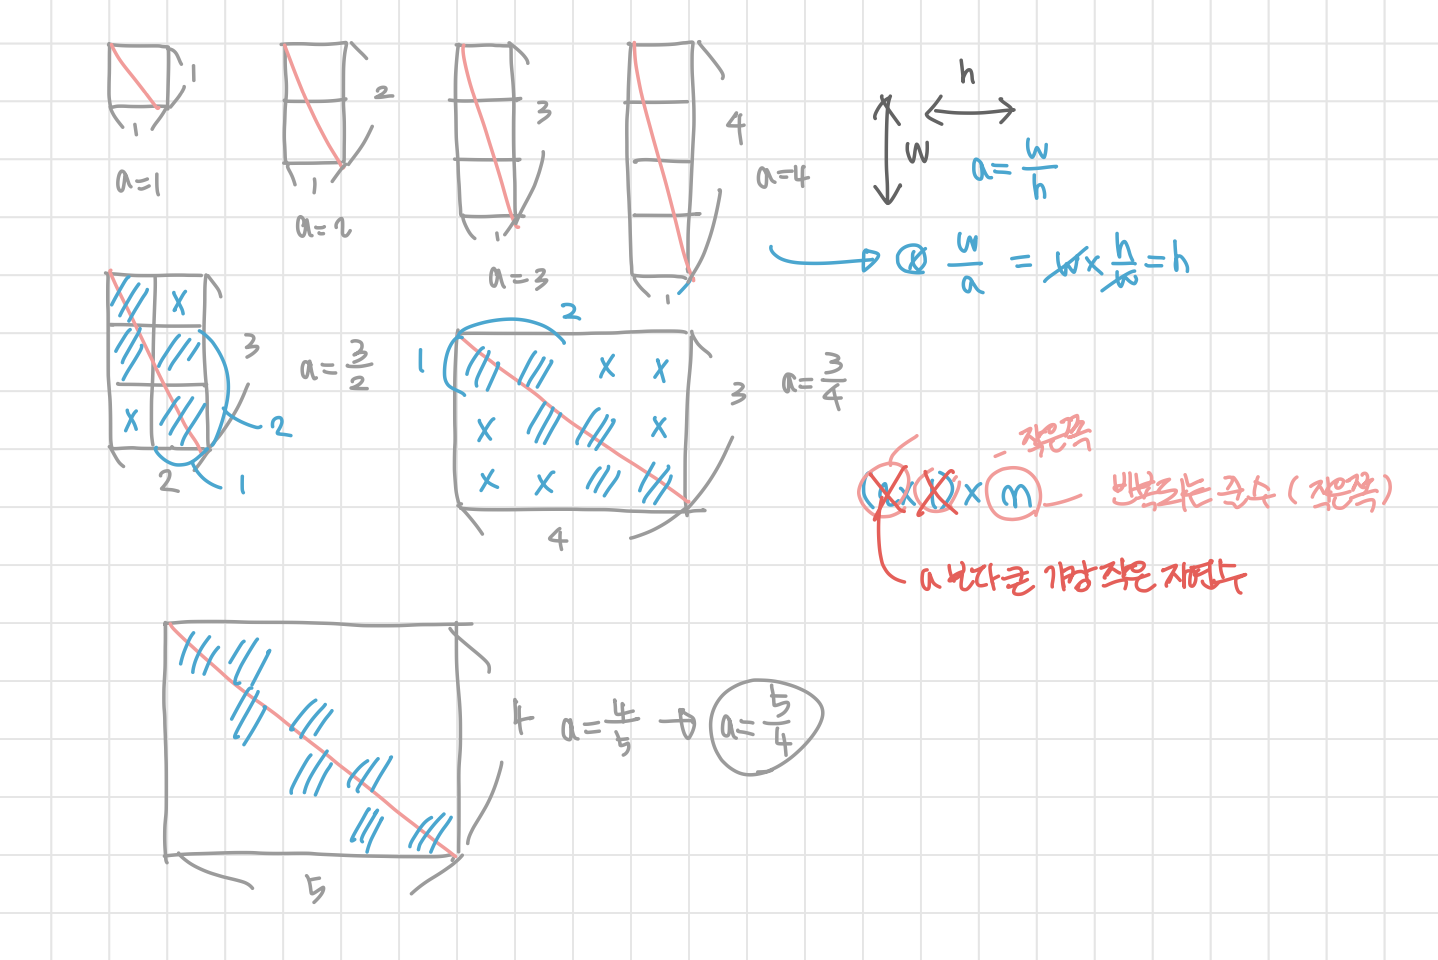 1
1
a=1
2
1
a=2
3
1
a=3
4
1
a=4
h
w
a= w/h
w/a = w x h/w = h
x
x
3
2
2
1
a= 3/2
2
1
x x
x x
x x
3
4
a= 3/4
작은쪽
x m
반복되는 준수 (작은쪽)
a보다 큰 가장 작은 자연수
4
5
a= 4/5 → a= 5/4